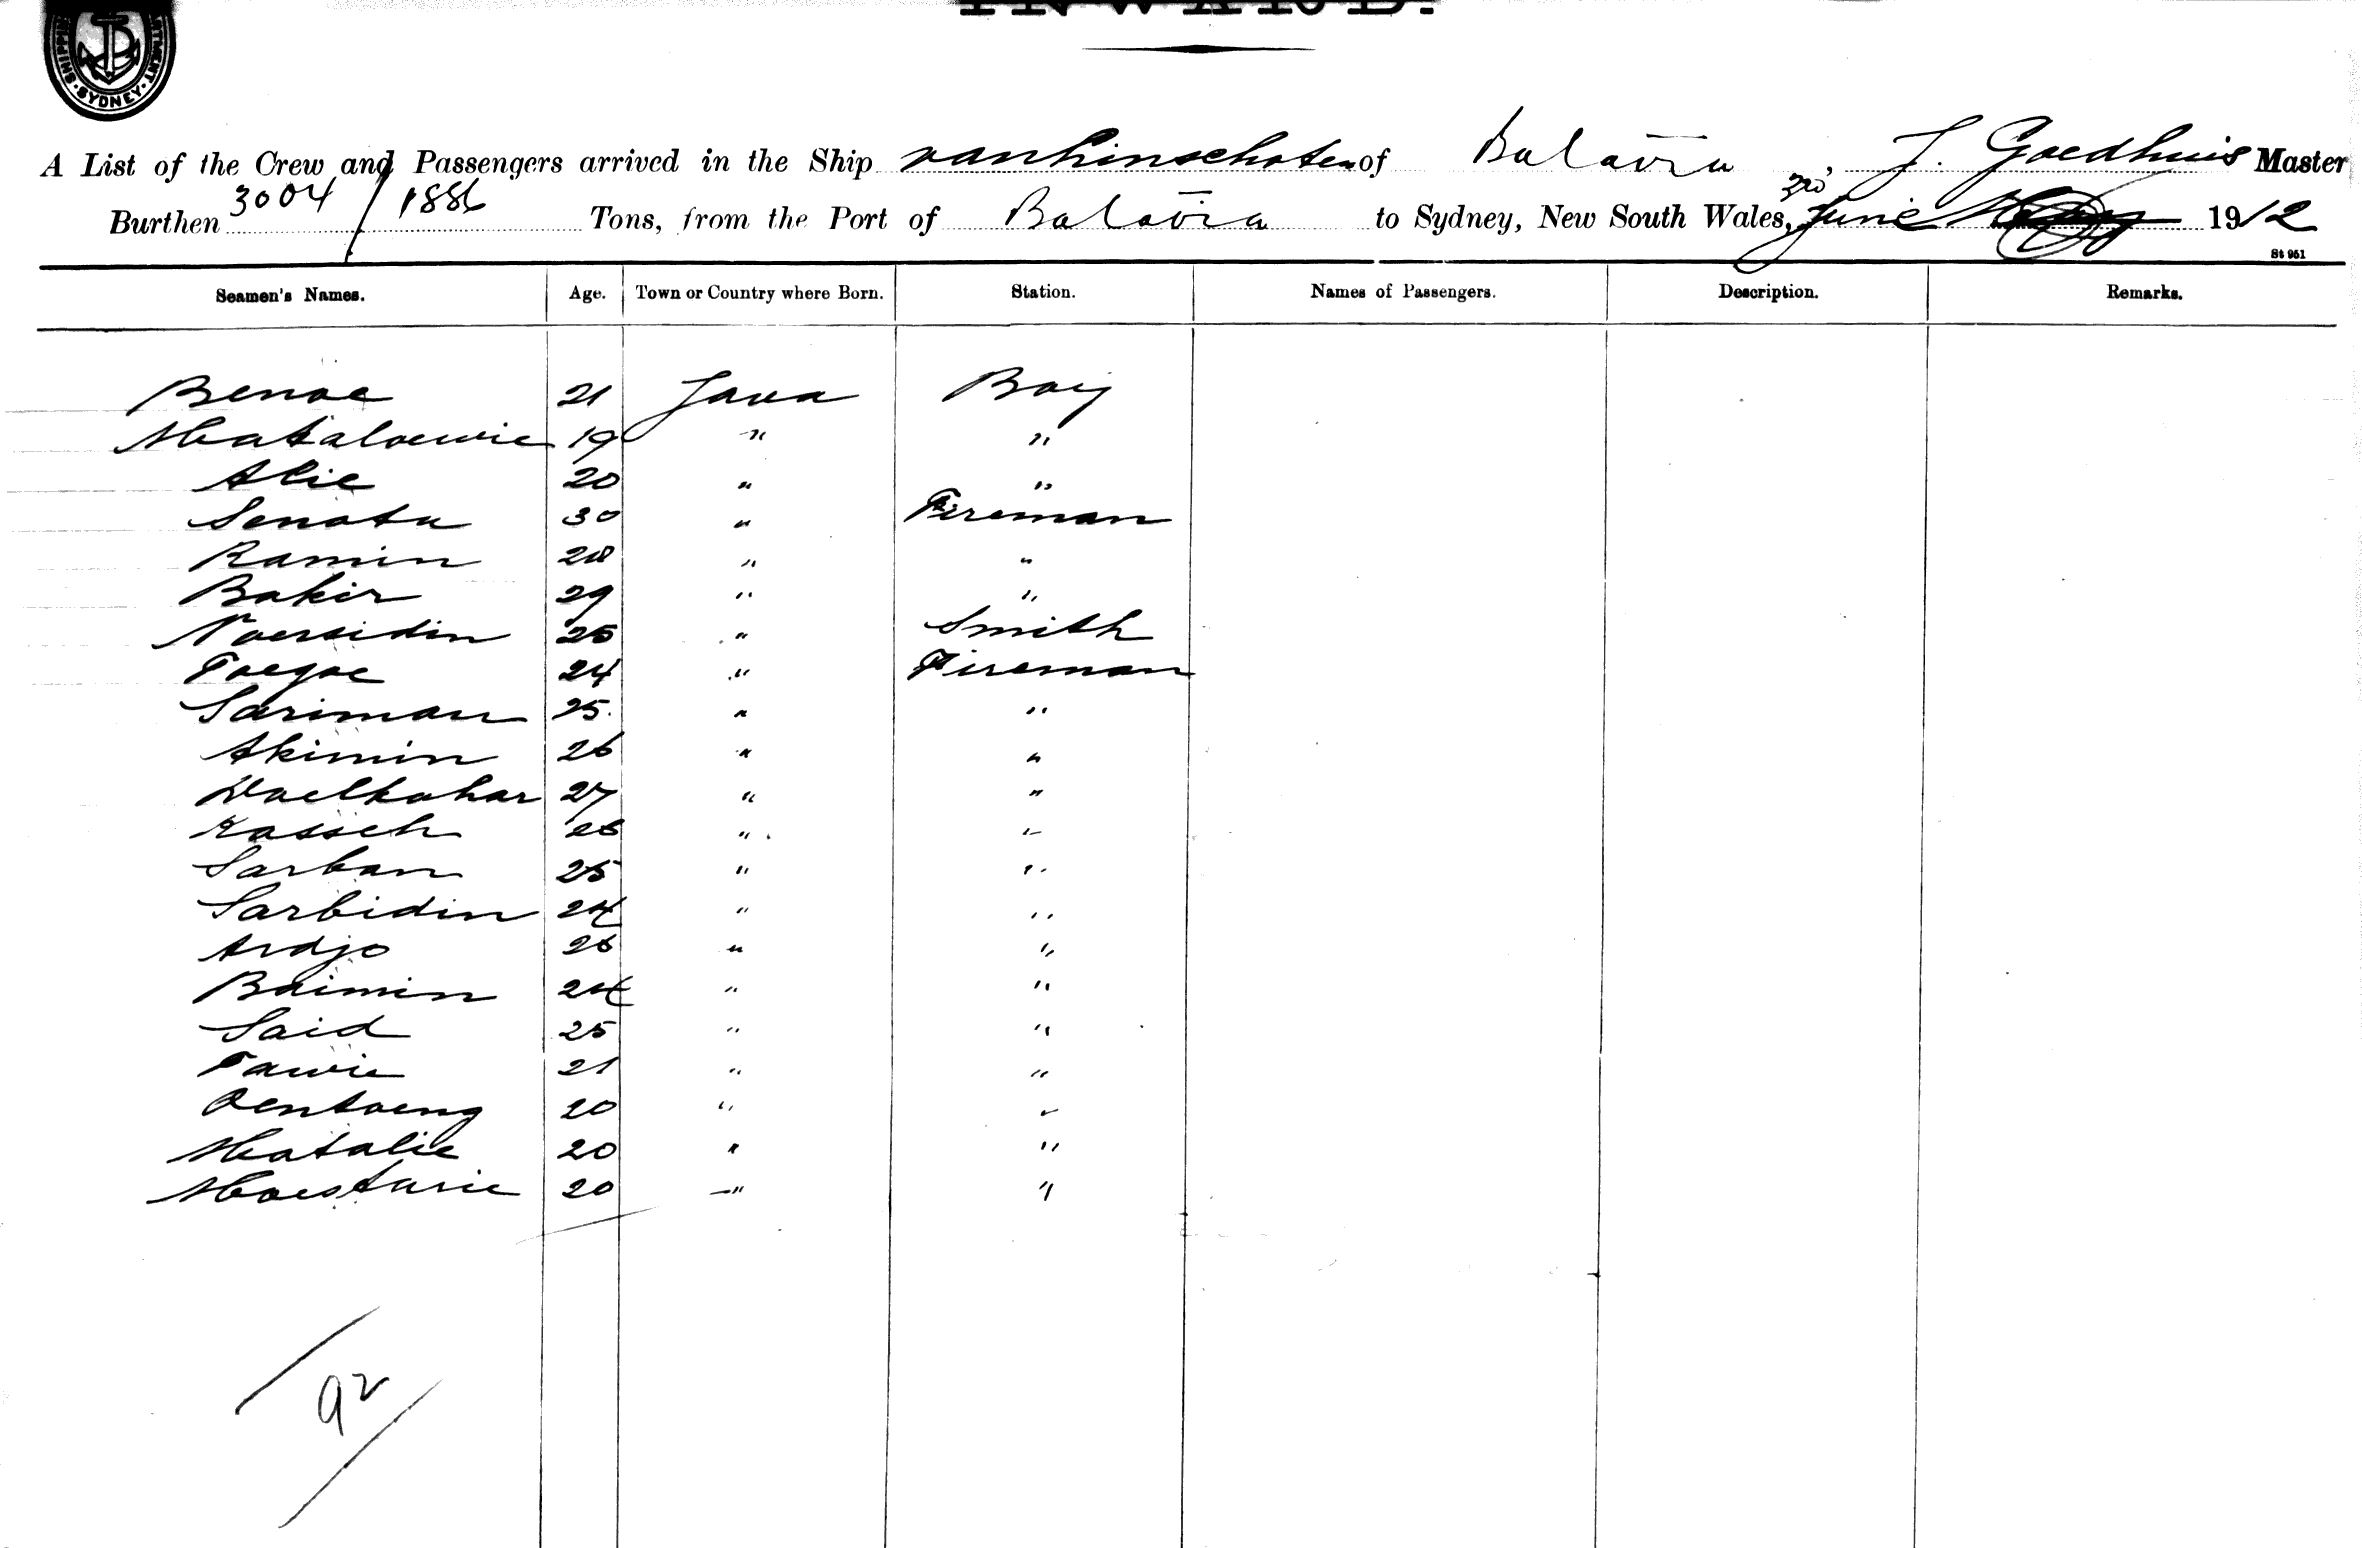 INWARD.
SHIPPIN TMENT. SYDNEY.
A List of the Crew and Passengers arrived in the Ship van Linschoten of Batavia, J. Goedhuis Master
Burthen 3004 / 1886 Tons, from the Port of Batavia to Sydney, New South Wales, June 1912
St 951
Seamen's Names. Age. Town or Country where Born. Station. Names of Passengers. Description. Remarks.
Benoe 21 Java Boy
Mataloewie 19 " "
Alie 20 " "
Senata 30 " Fireman
Ramin 28 " "
Bakir 29 " "
Noersidin 25 " Smith
Toegoe 24 " Fireman
Sariman 25 " "
Akimin 26 " "
Doelkahar 27 " "
Kasseh 26 " "
Sarban 25 " "
Sarbidin 24 " "
Ardjo 26 " "
Baimin 24 " "
Said 25 " "
Tawie 21 " "
Oentoeng 20 " "
Matalie 20 " "
Moestarie 20 " "
92